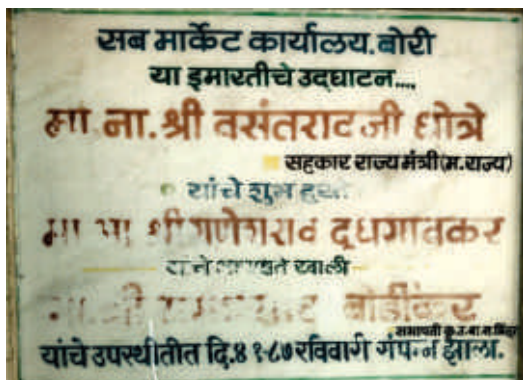 सब मार्केट कार्यालय. बोरी
या इमारतीचे उद्घाटन....
मा. ना. श्री वसंतराव जी धोत्रे
सहकार राज्य मंत्री (म. राज्य)
यांचे शुभ हस्ते
श्री गणेशराव दुधगावकर
यांचे खाली
श्री बोर्डीकर
सभापती कृ.उ.बा.स.
यांचे उपस्थीतीत दि.४ १-८७ रविवारी संपन्न झाला.